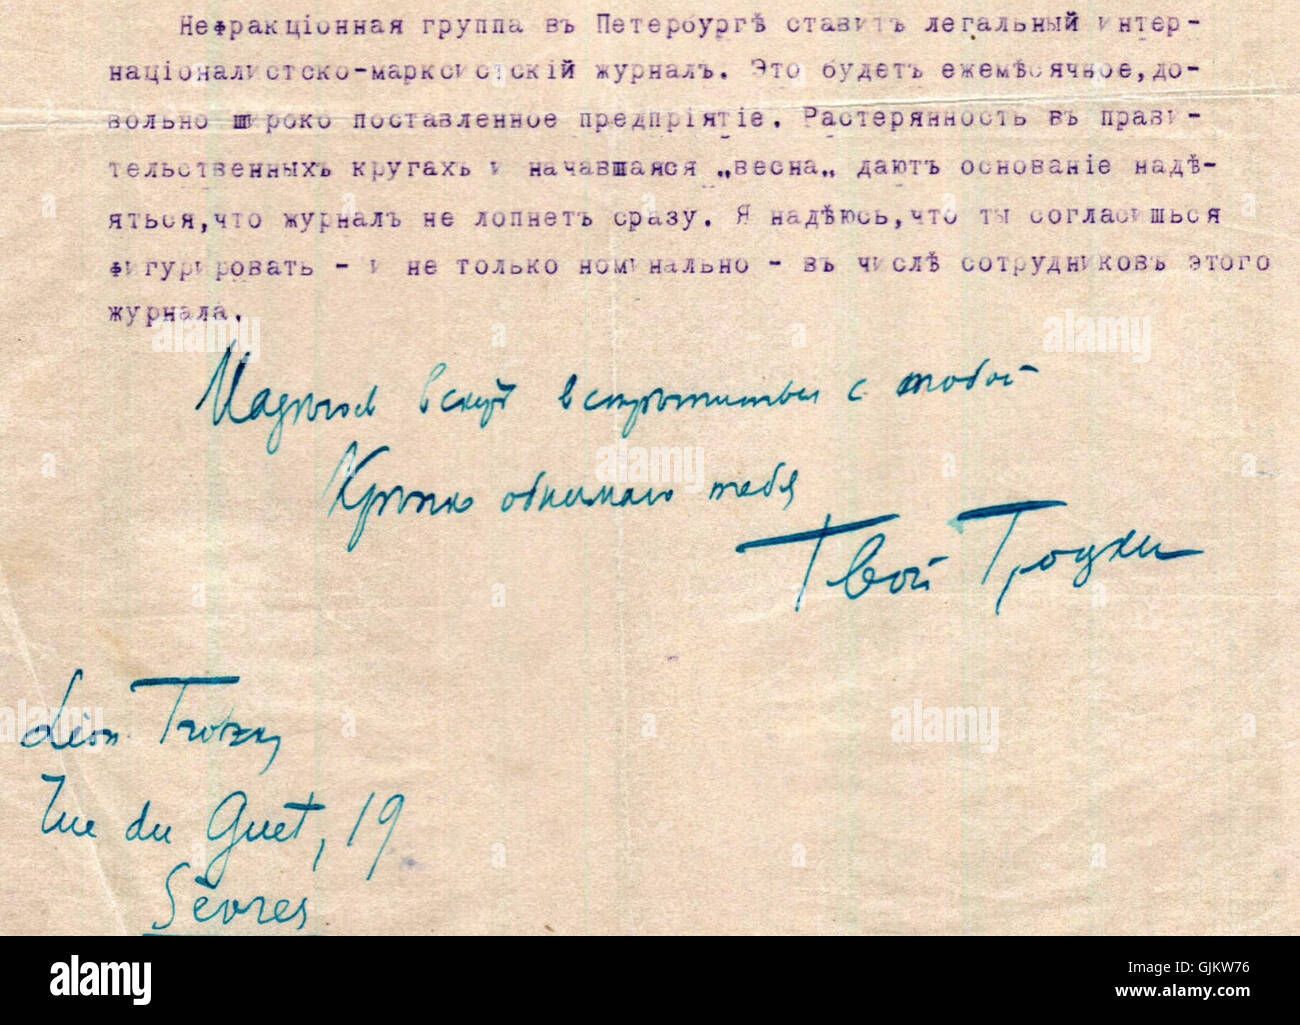 Нефракціонная группа въ Петербургѣ ставитъ легальный интер-
націоналистско-марксистскій журналъ. Это будетъ ежемѣсячное,до-
вольно широко поставленное предпріятіе. Растерянность въ прави-
тельственныхъ кругахъ и начавшаяся „весна„ даютъ основаніе надѣ-
яться,что журналъ не лопнетъ сразу. Я надѣюсь,что ты согласишься
фигурировать - и не только номинально - въ числѣ сотрудниковъ этого
журнала.
Надѣюсь вскорѣ встрѣтиться с тобой
Крѣпко обнимаю тебя
Твой Троцкий
Léon Trotzky
Rue du Guet, 19
Sèvres
alamy
Image ID: GJKW76
www.alamy.com